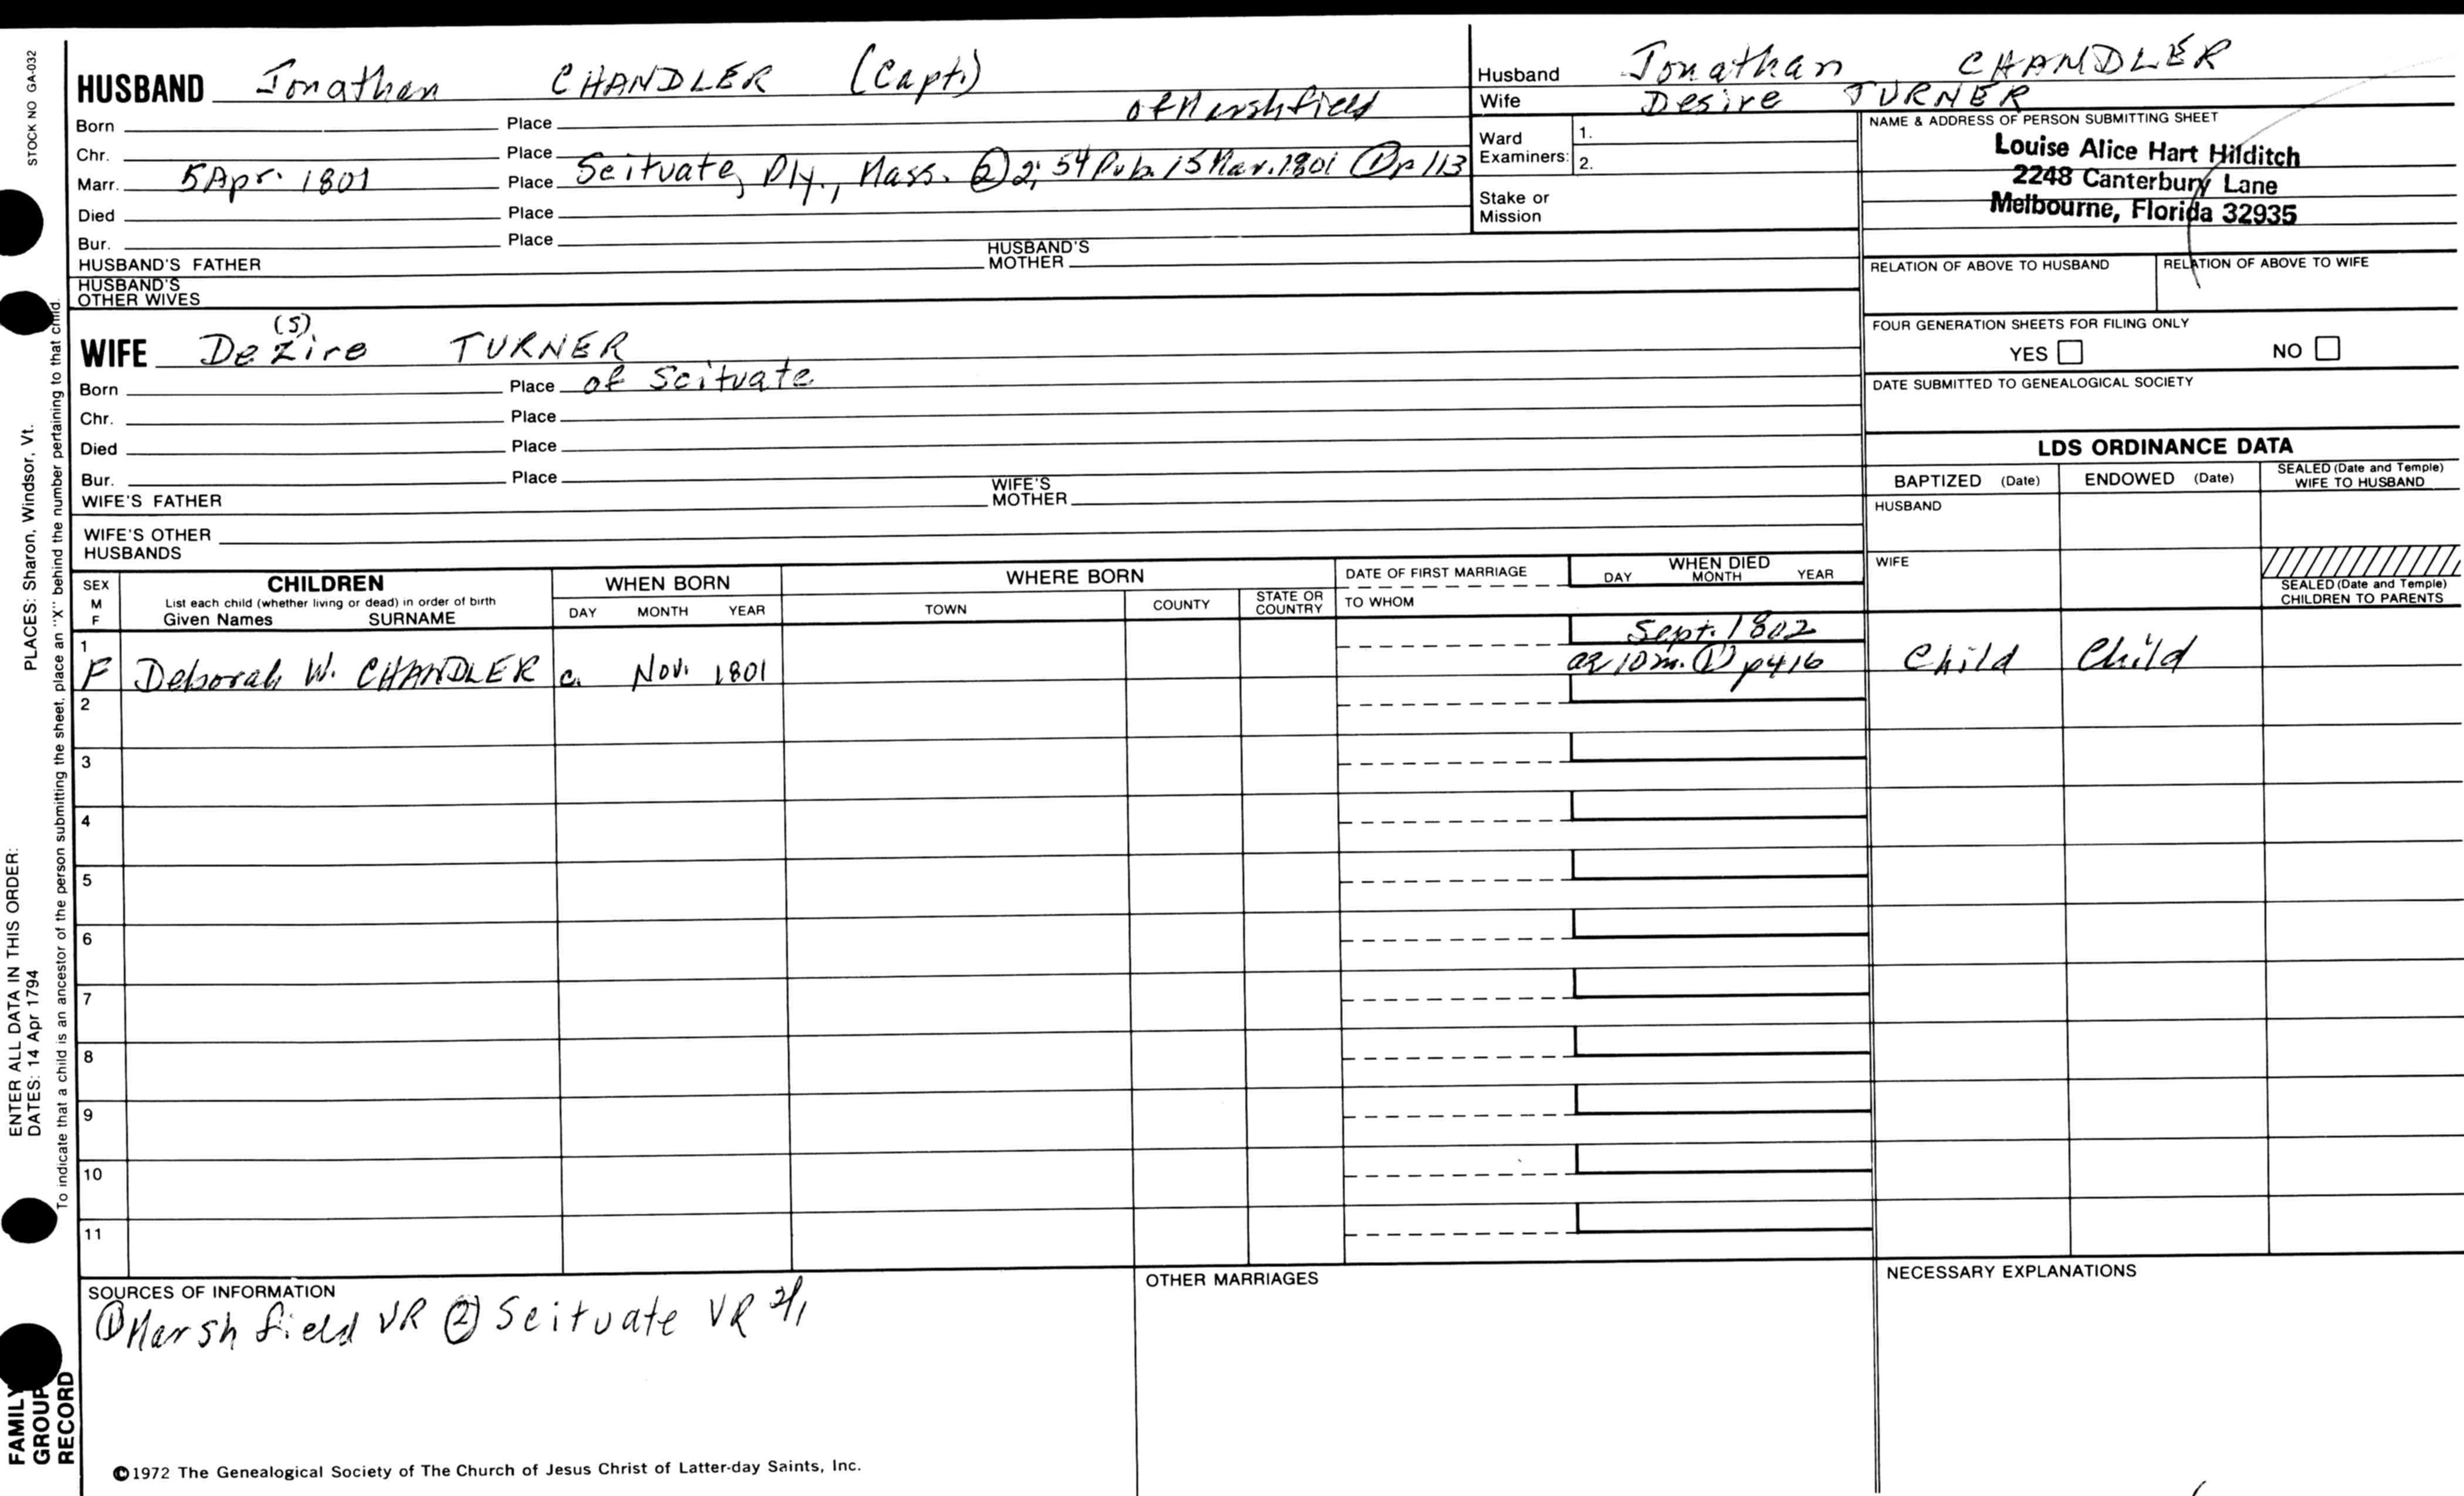 STOCK NO GA-032
PLACES: Sharon, Windsor, Vt.
ENTER ALL DATA IN THIS ORDER:
DATES: 14 Apr 1794
To indicate that a child is an ancestor of the person submitting the sheet, place an "X" behind the number pertaining to that child.
FAMILY
GROUP
RECORD
HUSBAND Jonathan CHANDLER (Capt.)
Born Place of Marshfield
Chr. Place
Marr. 5 Apr. 1801 Place Scituate, Ply., Mass. ② 2; 54 Pub. 15 Mar. 1801 ① p 113
Died Place
Bur. Place
HUSBAND'S FATHER HUSBAND'S MOTHER
HUSBAND'S OTHER WIVES
(S)
WIFE Dezire TURNER
Born Place of Scituate
Chr. Place
Died Place
Bur. Place
WIFE'S FATHER WIFE'S MOTHER
WIFE'S OTHER HUSBANDS
Husband Jonathan CHANDLER
Wife Desire TURNER
Ward Examiners: 1.
2.
Stake or Mission
NAME & ADDRESS OF PERSON SUBMITTING SHEET
Louise Alice Hart Hilditch
2248 Canterbury Lane
Melbourne, Florida 32935
RELATION OF ABOVE TO HUSBAND RELATION OF ABOVE TO WIFE
FOUR GENERATION SHEETS FOR FILING ONLY
YES NO
DATE SUBMITTED TO GENEALOGICAL SOCIETY
LDS ORDINANCE DATA
BAPTIZED (Date) ENDOWED (Date) SEALED (Date and Temple) WIFE TO HUSBAND
HUSBAND
WIFE
SEALED (Date and Temple) CHILDREN TO PARENTS
SEX M F
CHILDREN
List each child (whether living or dead) in order of birth
Given Names SURNAME
WHEN BORN
DAY MONTH YEAR
WHERE BORN
TOWN COUNTY STATE OR COUNTRY
DATE OF FIRST MARRIAGE
TO WHOM
WHEN DIED
DAY MONTH YEAR
1 Sept. 1802
F Deborah W. CHANDLER c. Nov. 1801 ae 10 m. ① p416 Child Child
2
3
4
5
6
7
8
9
10
11
SOURCES OF INFORMATION
① Marshfield VR ② Scituate VR 2/1
OTHER MARRIAGES
NECESSARY EXPLANATIONS
©1972 The Genealogical Society of The Church of Jesus Christ of Latter-day Saints, Inc.